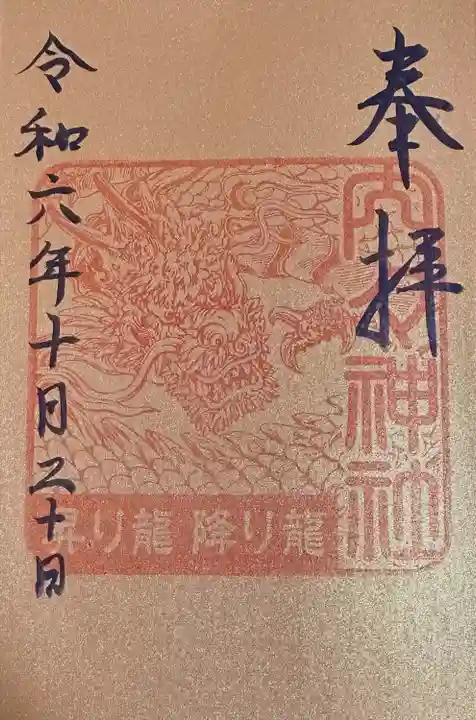 奉拝
神社
昇り龍 降り龍
令和六年十月二十日